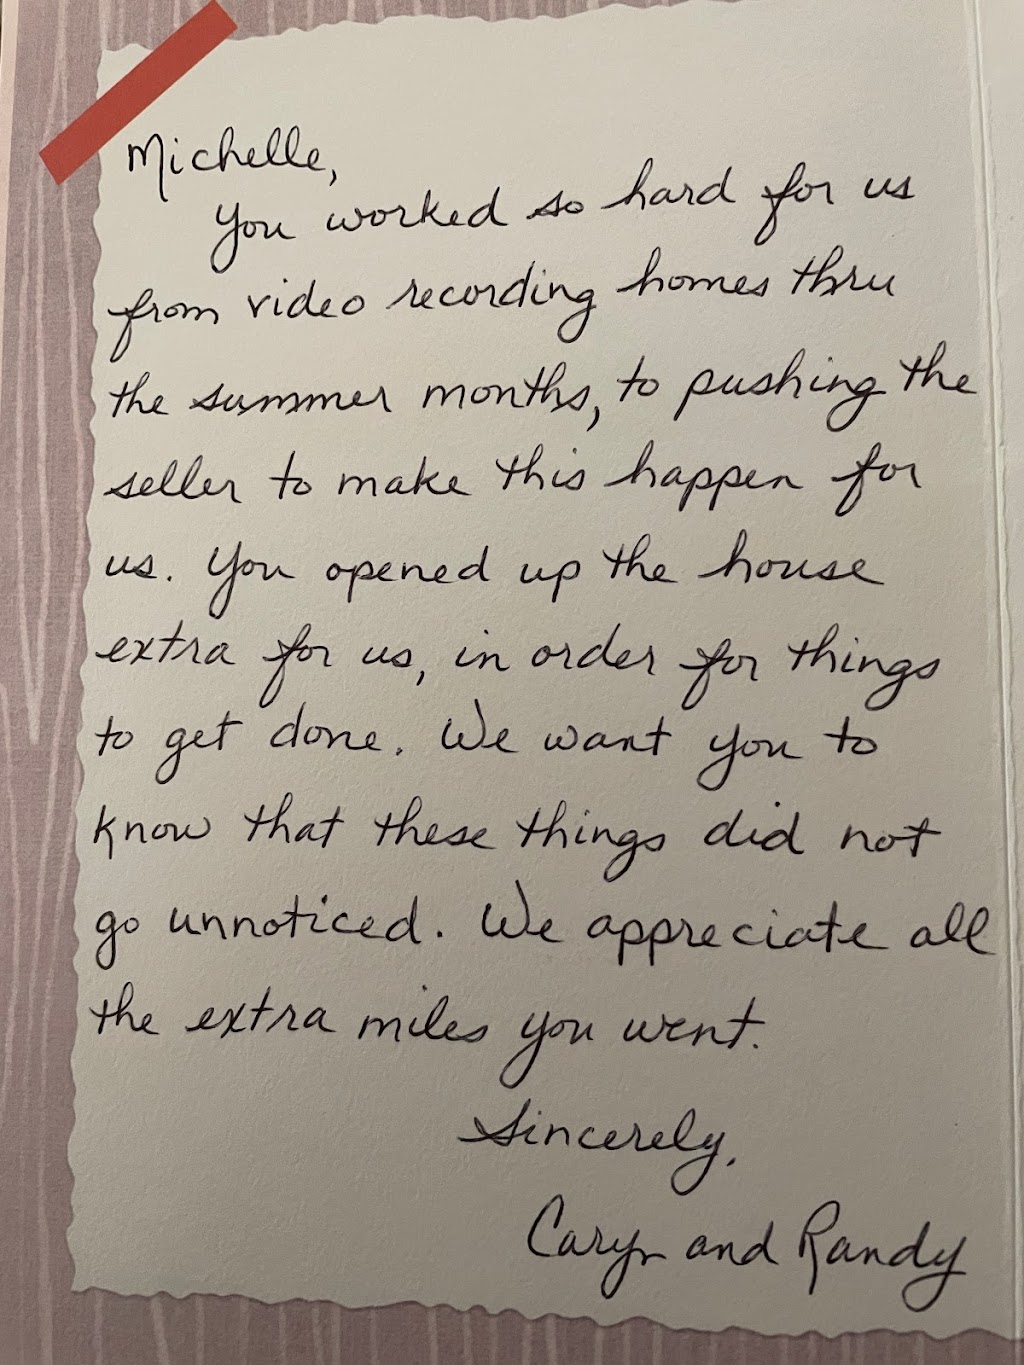 Michelle,
You worked so hard for us
from video recording homes thru
the summer months, to pushing the
seller to make this happen for
us. You opened up the house
extra for us, in order for things
to get done. We want you to
know that these things did not
go unnoticed. We appreciate all
the extra miles you went.
Sincerely,
Caryn and Randy